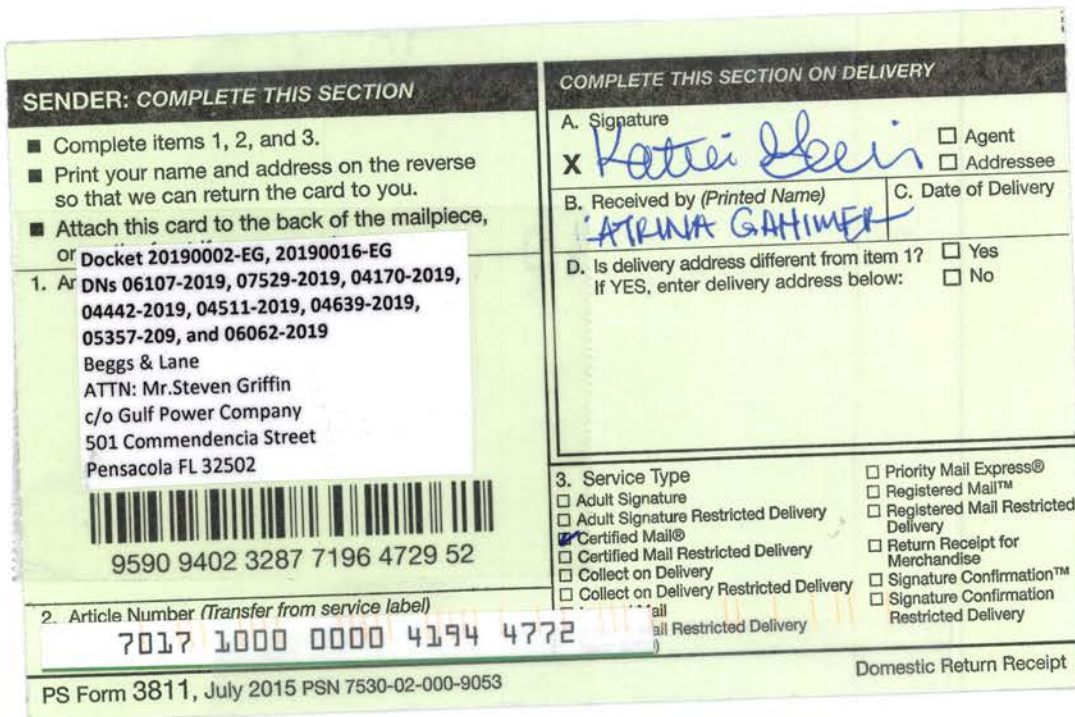 SENDER: COMPLETE THIS SECTION
■ Complete items 1, 2, and 3.
■ Print your name and address on the reverse
so that we can return the card to you.
■ Attach this card to the back of the mailpiece,
or
1. Ar
Docket 20190002-EG, 20190016-EG
DNs 06107-2019, 07529-2019, 04170-2019,
04442-2019, 04511-2019, 04639-2019,
05357-209, and 06062-2019
Beggs & Lane
ATTN: Mr.Steven Griffin
c/o Gulf Power Company
501 Commendencia Street
Pensacola FL 32502
9590 9402 3287 7196 4729 52
2. Article Number (Transfer from service label)
7017 1000 0000 4194 4772
COMPLETE THIS SECTION ON DELIVERY
A. Signature
X
☐ Agent
☐ Addressee
B. Received by (Printed Name)
ATRINA GAHIMER
C. Date of Delivery
D. Is delivery address different from item 1? ☐ Yes
If YES, enter delivery address below: ☐ No
3. Service Type
☐ Adult Signature
☐ Adult Signature Restricted Delivery
☑ Certified Mail®
☐ Certified Mail Restricted Delivery
☐ Collect on Delivery
☐ Collect on Delivery Restricted Delivery
Mail
ail Restricted Delivery
)
☐ Priority Mail Express®
☐ Registered Mail™
☐ Registered Mail Restricted
Delivery
☐ Return Receipt for
Merchandise
☐ Signature Confirmation™
☐ Signature Confirmation
Restricted Delivery
PS Form 3811, July 2015 PSN 7530-02-000-9053
Domestic Return Receipt